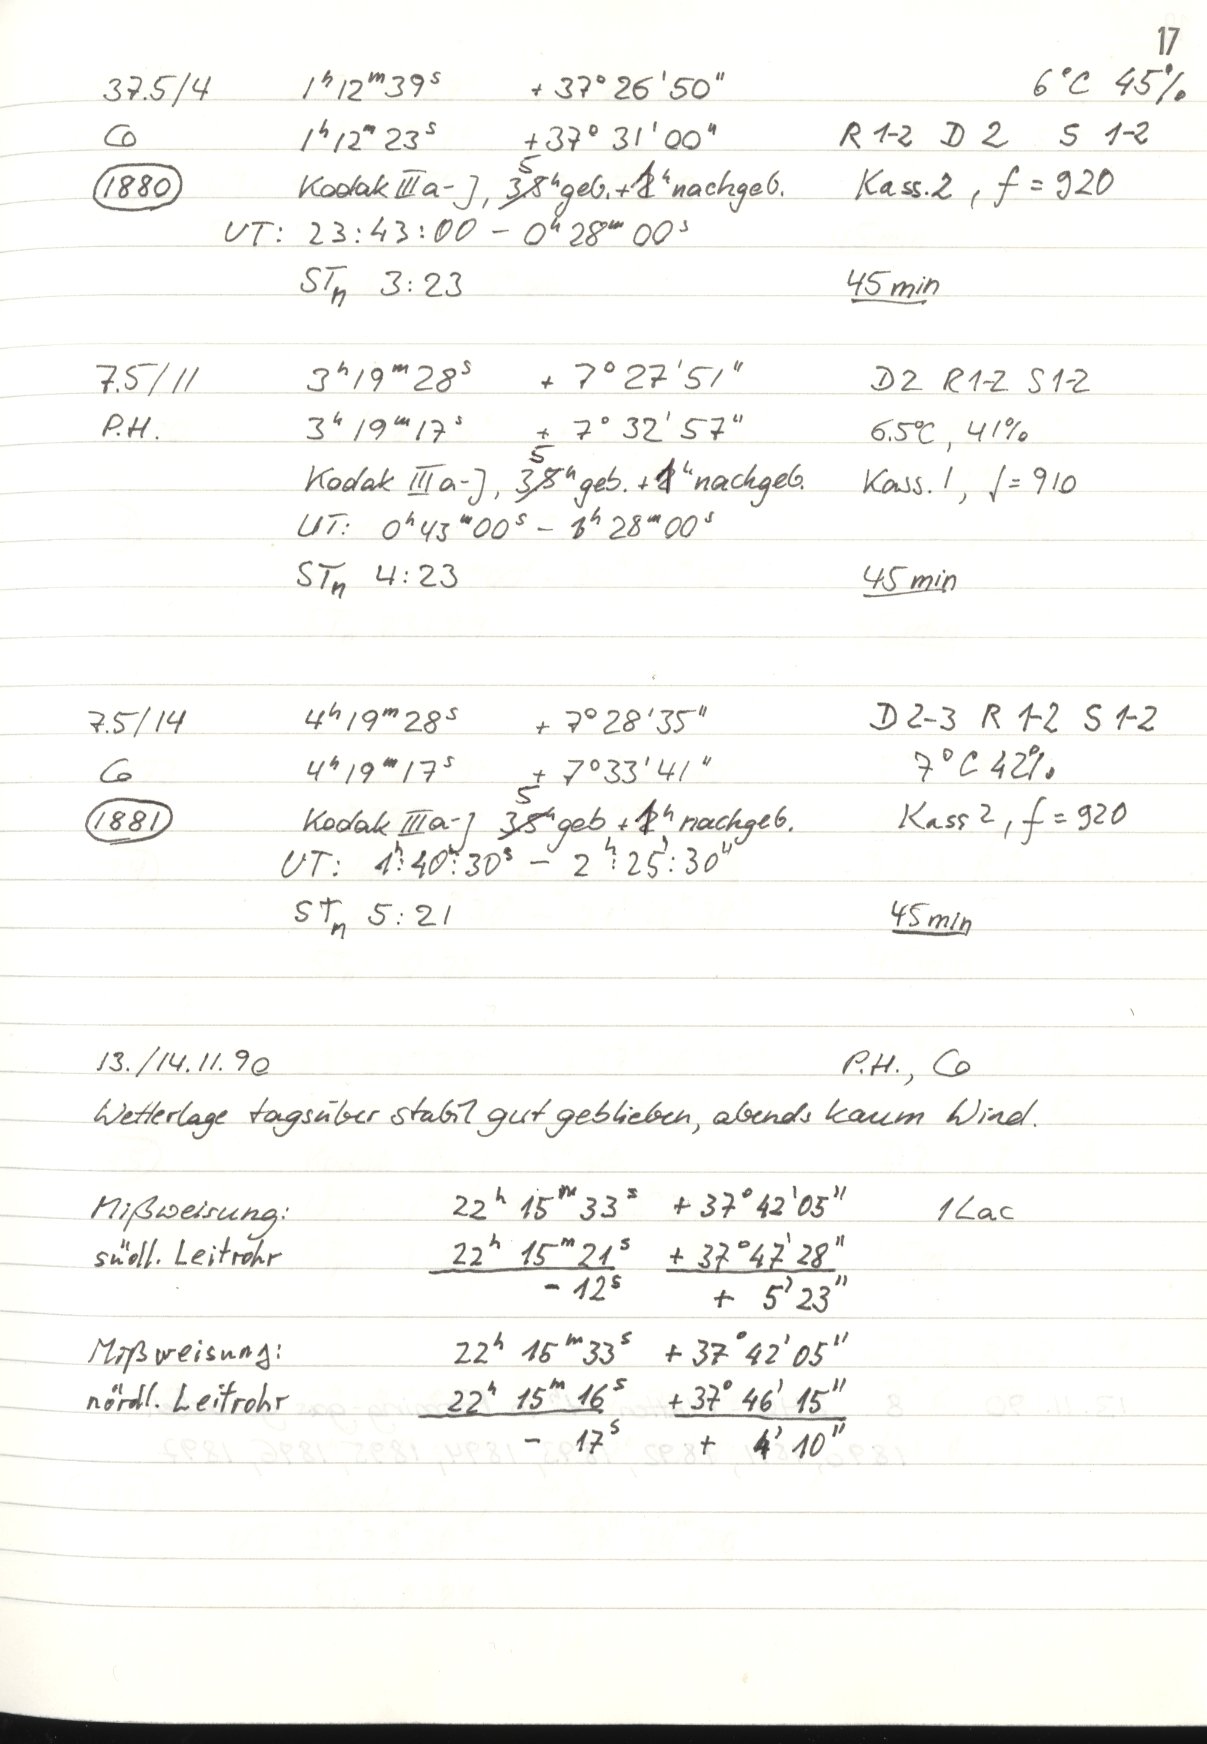 17
37.5/4 1ʰ12ᵐ39ˢ + 37° 26' 50" 6°C 45%
Co 1ʰ12ᵐ23ˢ +37° 31' 00" R 1-2 D 2 S 1-2
1880 Kodak IIIa-J, 5ʰ geb. + 1ʰ nachgeb. Kass. 2, f = 920
UT: 23:43:00 - 0ʰ 28ᵐ 00ˢ
STn 3:23 45 min
7.5/11 3ʰ19ᵐ28ˢ + 7° 27' 51" D2 R1-2 S1-2
P.H. 3ʰ19ᵐ17ˢ + 7° 32' 57" 6.5°C, 41%
Kodak IIIa-J, 5ʰ geb. + 1ʰ nachgeb. Kass. 1, f = 910
UT: 0ʰ43ᵐ00ˢ - 1ʰ 28ᵐ00ˢ
STn 4:23 45 min
7.5/14 4ʰ19ᵐ28ˢ + 7° 28' 35" D 2-3 R 1-2 S 1-2
Co 4ʰ19ᵐ17ˢ + 7° 33' 41" 7°C 42%
1881 Kodak IIIa-J 5ʰ geb + 1ʰ nachgeb. Kass 2, f = 920
UT: 1ʰ:40':30ˢ - 2ʰ:25':30"
STn 5:21 45 min
13./14.11.90 P.H., Co
Wetterlage tagsüber stabil gut geblieben, abends kaum Wind.
Mißweisung: 22ʰ 15ᵐ 33ˢ + 37° 42' 05" 1 Lac
südl. Leitrohr 22ʰ 15ᵐ 21ˢ + 37° 47' 28"
- 12ˢ + 5' 23"
Mißweisung: 22ʰ 15ᵐ 33ˢ + 37° 42' 05"
nördl. Leitrohr 22ʰ 15ᵐ 16ˢ + 37° 46' 15"
- 17ˢ + 4' 10"